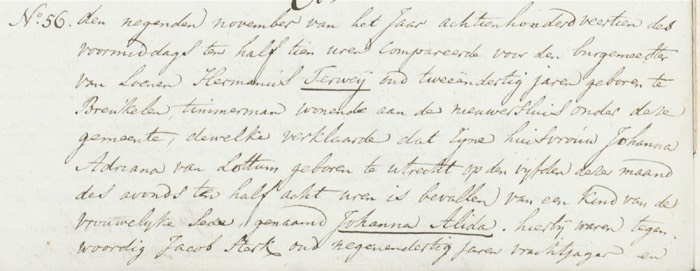 No. 56. den negenden november van het Jaar achtienhonderd veertien des
voormiddags ten half tien uren Compareerde voor den burgemeester
van Loenen Hermanus Terweij oud tweeëndertig jaren geboren te
Breukelen, timmerman wonende aan de nieuwersluis onder deze
gemeente, dewelke verklaarde dat zijne huisvrouw Johanna
Adriana van Lottum geboren te utrecht op den vyfden dezer maand
des avonds ten half acht uren is bevallen van een Kind van de
vrouwelyke Sexe, genaamd Johanna Alida. hierby waren tegen
woordig Jacob Sterk oud negenendertig jaren vrachtjager en